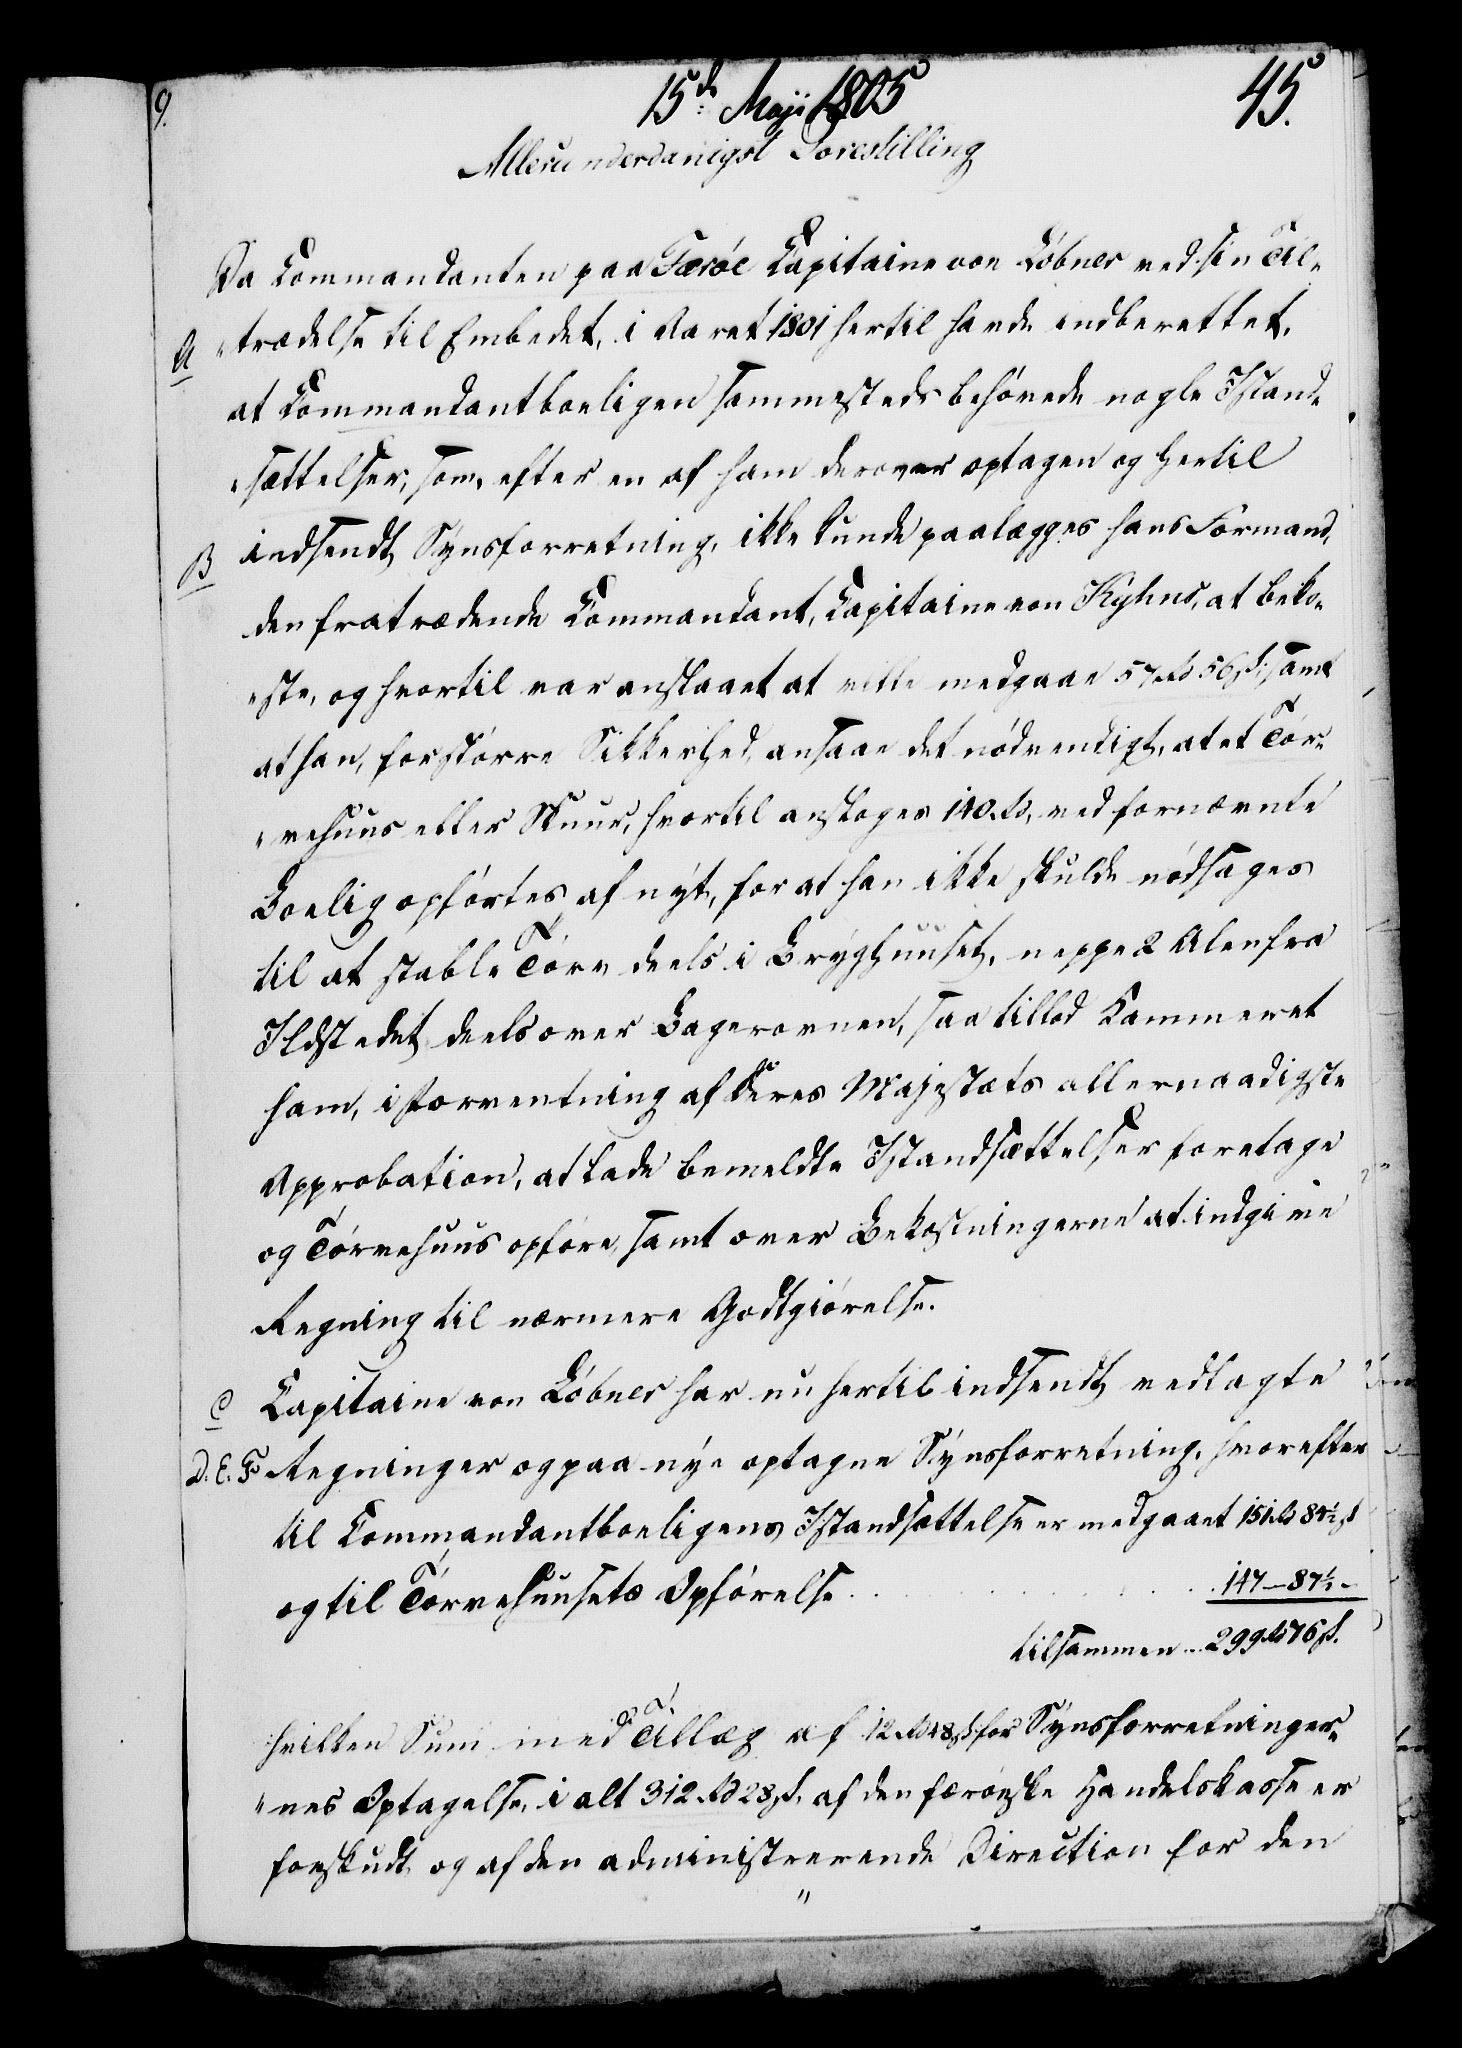 9.
15de Maji 1805
45.
Allerunderdanigst Forestilling
Da Commandanten paa Færöe Capitaine von Löbner ved sin Til„
A „trædelse til Embedet, i Aaret 1801 hertil havde indberettet,
at Commandantboeligen sammesteds behövede nogle Istand„
„sættelser, som, efter en af ham derover optagen og hertil
B indsendt Synsforretning, ikke kunde paalægges hans Formand,
den fratrædende Commandant, Capitaine von Kyhns, at beko„
„ste, og hvortil var anslaaet at ville medgaae 57 Rd 56 s: samt
at han, for större Sikkerhed, ansaae det nödvendigt, at et Tör„
„vehuus eller Skuur, hvortil ansloges 140 Rd, ved fornævnte
Boelig opförtes af nyt, for at han ikke skulde nödsages
til at stable Törv deels i Bryghuuset, neppe 2 Alen fra
Ildstedet deels over Bagerovnen, saa tillod Kammeret
ham, i Forventning af Deres Majestæts allernaadigste
Approbation, at lade bemeldte Istandsættelser foretage
og Törvehuus opföre, samt over Bekostningerne at indgive
Regning til nærmere Godtgiörelse.
C Capitaine von Löbner har nu hertil indsendt vedlagte
D. E. F. Regninger og paa nye optagne Synsforretning, hvorefter
til Commandantboeligens Istandsættelse er medgaaet 151 Rd 84½ s
og til Törvehuusets Opförelse . . . . . 147 – 87½ -
tilsammen .. 299 Rd 76 s.
hvilken Sum med Tillæg af 12 Rd 48 s for Synsforretninger„
„nes Optagelse, i alt 312 Rd 28 s. af den færöeske Handelskasse er
forskudt, og af den administrerende Direction for den